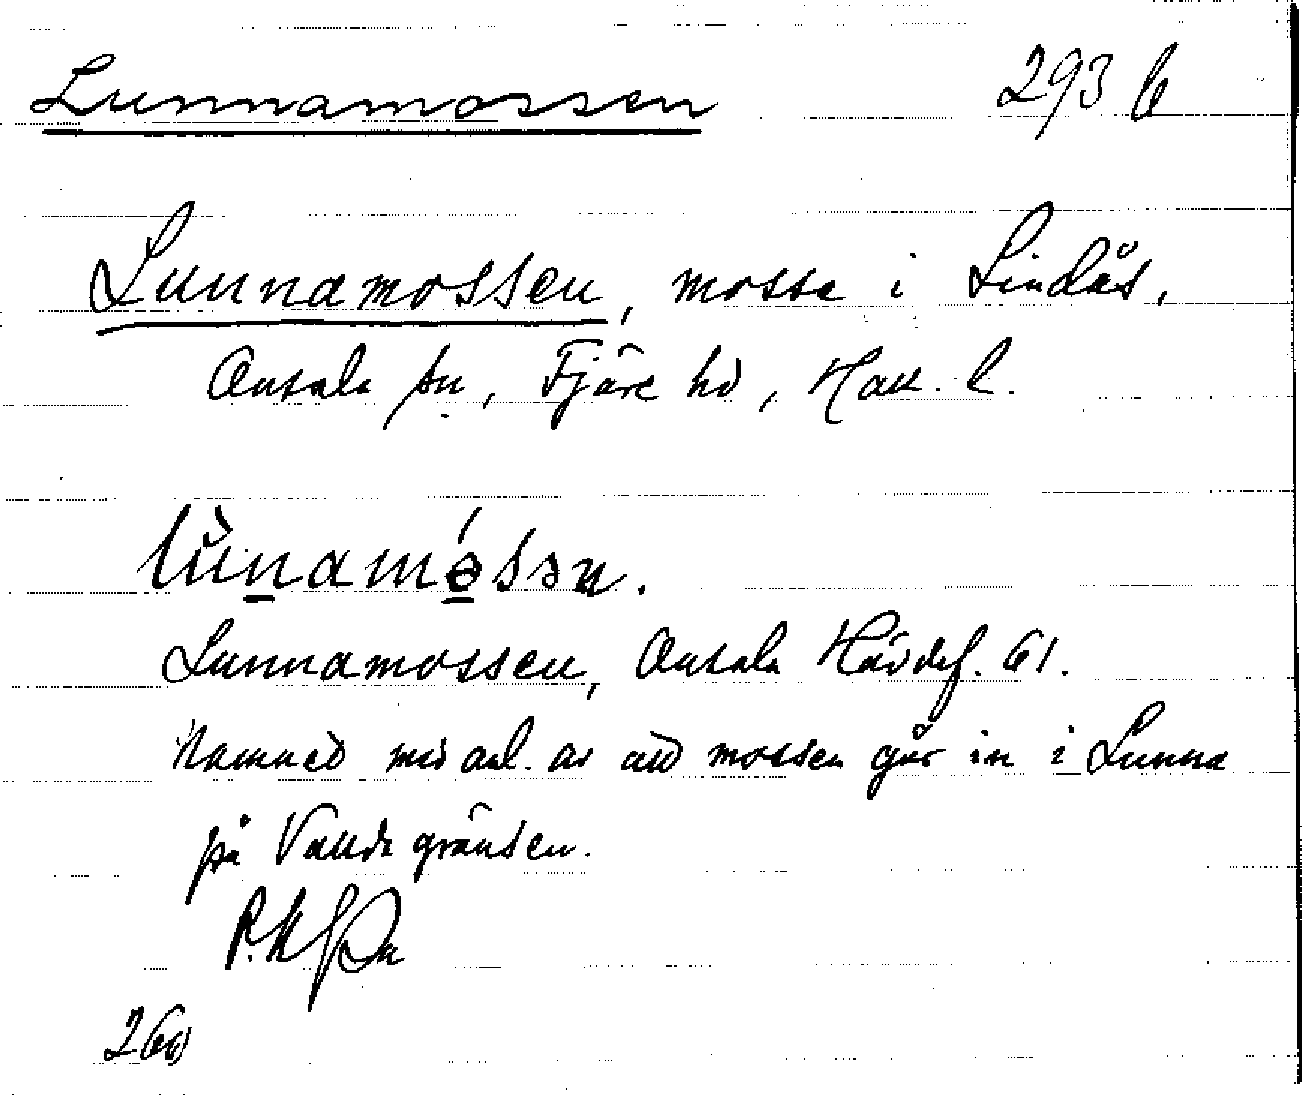 Lunnamossen 293 b
Lunnamossen, mosse i Lindås,
Onsala sn, Fjäre hd, Hall. l.
lùnamóssn.
Lunnamossen, Onsala Hävdef. 61.
Namned med anl. av att mossen går in i Lunna
på Vallda gränsen.
260